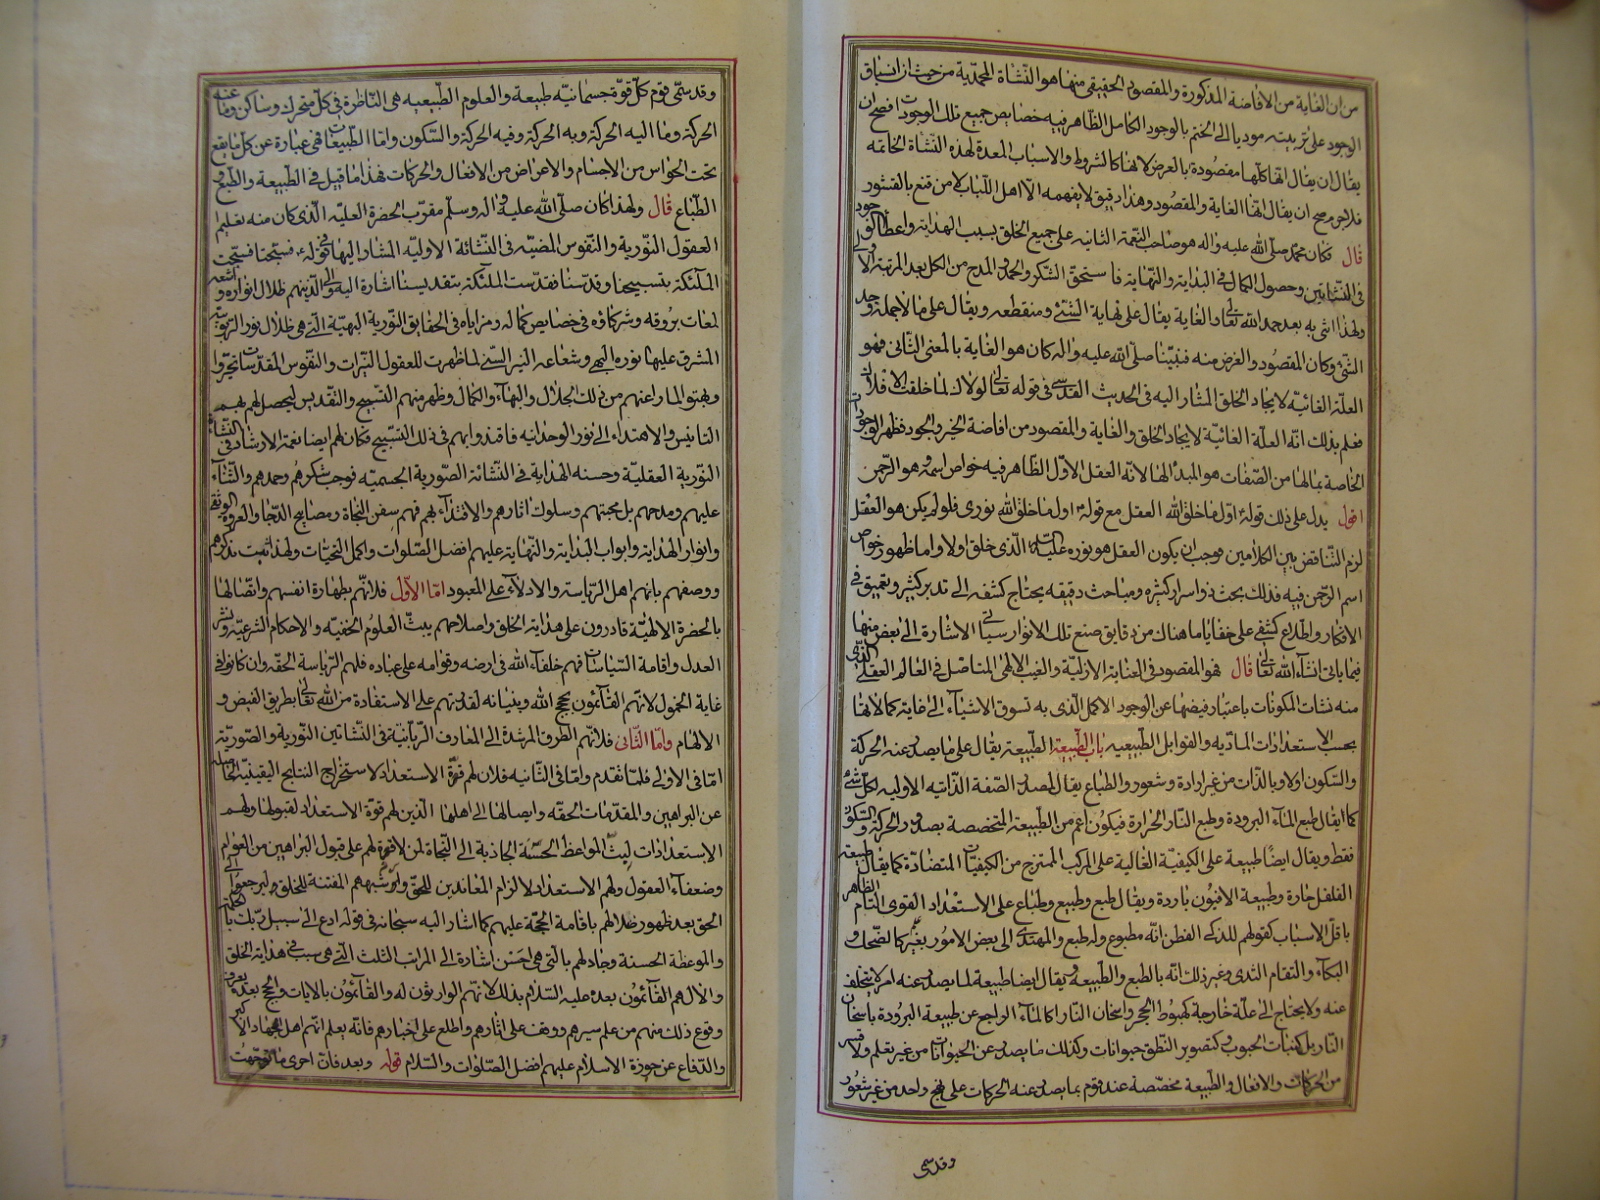 من ان الغاية من الافاضة المذكورة والمقصود الحقيقى منها هو النشاة المحمدية من حيث ان انساق
الوجود على تربيته موديا الى الختم بالوجود الكامل الظاهر فيه خصايص جميع تلك الوجودات فصح ان
يقال ان يقال انها كلها مقصودة بالعرض لانها كالشروط والاسباب المعدة لهذه النشاة الخاتمه
ان يقال انها الغاية والمقصود وهذا دقيق لا يفهمه الا اهل اللباب لا من قنع بالقشور
قال فكان محمد صلى الله عليه واله هو صاحب النعمة الثانيه على جميع الخلق بسبب الهداية واعطا
فى النشاتين وحصول الكمال فى البداية والنهاية فاستحق الشكر والحمد والمدح من الكل بعد المرتبة الاولى
ولهذا اثنى به بعد حمد الله تعالى والغاية يقال على نهاية الشئ ومنقطعه ويقال على ما لاجله وجد
الشئ وكان المقصود والغرض منه فنبينا صلى الله عليه واله كان هو الغاية بالمعنى الثانى فهو
العلة الغائيه لايجاد الخلق المشار اليه فى الحديث القدسى فى قوله تعالى لولاك لما خلقت الافلاك
فعلم بذلك انه العلة الغائيه لايجاد الخلق والغاية والمقصود من افاضة الخير والجود فظهر الوجودات
الخاصة بمالها من الصفات هو المبدأ لها لانه العقل الاول الظاهر فيه خواص اسمه هو الرحمن
اقول يدل على ذلك قوله اول ما خلق الله العقل مع قوله اول ما خلق الله نورى فلو لم يكن هو العقل
لزم التناقض بين الكلامين فوجب ان يكون العقل هو نوره عليه الذى خلق اولا واما ظهور خواص
اسم الرحمن فيه فذلك بحث ذو اسرار كثيره ومباحث دقيقه يحتاج كشفه الى تدبر كثير وتعميق فى
الافكار واطلاع كشفى على خفايا ما هناك من دقايق صنع تلك الانوار سياتى الاشارة الى بعض منها
فيما ياتى انشاء الله تعالى قال فهو المقصود فى العناية الازلية والغيب الالهى المتاصل فى العالم العقلى الذى
منه نشات المكونات باعتبار فيضها عن الوجود الاكمل الذى به تسوق الاشياء الى غاية كمالاتها
بحسب الاستعدادات الماديه والقوابل الطبيعيه باب الطبيعة الطبيعة يقال على ما يصدر عنه الحركة
والسكون اولا وبالذات من غير ارادة وشعور والطباع يقال لمصدر الصفة الذاتيه الاوليه لكل شئ
كما يقال طبع الماء البرودة وطبع النار الحرارة فيكون اعم من الطبيعة المتخصصة بصدور الحركة والسكون
فقط ويقال ايضا طبيعة على الكيفية الغالبة على المركب الممتزج من الكيفيات المتضادة كما يقال طبيعة
الفلفل حارة وطبيعة الافيون باردة ويقال طبع وطبيع وطباع على الاستعداد القوى التام الظاهر
باقل الاسباب كقولهم للذكى الفطن انه مطبوع وله طبع والمهتدى الى بعض الامور بغيره كالضحك و
البكاء والتقام الثدى وغير ذلك انه بالطبع والطبيعة ويقال ايضا طبيعة لما يصدر عنه امر لا يتخلف
عنه ولا يحتاج الى علة خارجة كهبوط الحجر واسخان النار اكالماء الراجع عن طبيعة البرودة باسخان
النار بل كنبات الحبوب وكتصوير النطق حيوانات وكذلك ما يصدر عن الحيوانات من غير تعلم ولا قسر
من الحركات والافعال والطبيعة مخصصة عند قوم بما يصدر عنه الحركات على نهج واحد من غير شعور
وقد سمى
وقد سمى قوم كل قوة جسمانيه طبيعة والعلوم الطبيعيه هى الناظرة فى كل متحرك وساكن وما عنه
الحركة وما اليه الحركة وبه الحركة وفيه الحركة والسكون واما الطبيعيات فهى عبارة عن كل ما يقع
تحت الحواس من الاجسام والاعراض من الافعال والحركات فهذا ما قيل فى الطبيعة والطبع و
الطباع قال ولهذا كان صلى الله عليه واله وسلم مقرب الحضرة العليه الذى كان منه تعليم
العقول النورية والنفوس المضيه فى النشائة الاوليه المشار اليها فى قوله فسبحنا فسبحت
الملئكة بتسبيحنا وقدسنا فقدست الملئكة بتقديسنا اشارة اليه والى الذينهم ظلال انواره واشعه
لمعات بروقه وشركاؤه فى خصايص كماله ومزاياه فى الحقايق النورية البهية التى هى ظلال نور الربوبية
المشرق عليها نوره البهى وشعاعه النير السنى لما ظهرت للعقول النيرات والنفوس المقدسات تحيروا
وبهتوا لما راعنهم من ذلك الجلال والبهاء والكمال وظهر منهم التسبيح والتقديس ليحصل لهم بهم
التانيس والاهتداء الى نور الوحدانيه فاقتدوا بهم فى ذلك التسبيح فكان لهم ايضا نعمة الارشاد فى النشاة
النورية العقلية وحسنه الهداية فى النشائة الصورية الجسميه فوجب شكرهم وحمدهم والثناء
عليهم ومدحهم بل محبتهم وسلوك اثارهم والاقتداء بهم فهم سفن النجاة ومصابيح الدجا والعروة الوثقى
وانوار الهداية وابواب البداية والنهاية عليهم افضل الصلوات واكمل التحيات ولهذا تمت بذكرهم
ووصفهم بانهم اهل الرياسة والادلاء على المعبود اما الاول فلانهم بطهارة انفسهم واتصالها
بالحضرة الالهية قادرون على هداية الخلق واصلاحهم ببث العلوم الخفيه والاحكام الشرعية ونشر
العدل واقامة السياسات فهم خلفاء الله فى ارضه وقوامه على عباده فلهم الرياسة الحقه وان كانوا فى
غاية الخمول لانهم القائمون بحجج الله وبيناته لقدرتهم على الاستفادة من الله تعالى بطريق الفيض و
الالهام واما الثانى فلانهم الطرق المرشدة الى المعارف الربانية فى النشاتين النورية والصورية
اما فى الاولى فلما تقدم واما فى الثانيه فلان لهم قوة الاستعداد لاستخراج النتايج اليقينية الحاصلة
عن البراهين والمقدمات الحقه وايصالها الى اهلها الذين لهم قوة الاستعداد لقبولها ولهم
الاستعدادات لبث المواعظ الحسنة الجاذبة الى النجاة لمن لا قوة لهم على قبول البراهين من العوام
وضعفاء العقول ولهم الاستعداد لالزام المعاندين للحق وكسر شبههم المفتنة للخلق وليرجعوا الى
الحق بعد ظهور ضلالهم باقامة الحجة عليهم كما اشار اليه سبحانه فى قوله ادع الى سبيل ربك بالحكمة
والموعظة الحسنة وجادلهم بالتى هى احسن اشارة الى المراتب الثلث التى هى سبب فى هداية الخلق
والال هم القائمون بعده عليه السلام بذلك لانهم الوارثون له والقائمون بالايات والحجج بعده يعرف
وقوع ذلك منهم من علم سيرهم ووقف على اثارهم واطلع على اخبارهم فانه يعلم انهم اهل الجهاد الاكبر
والدفاع عن حوزة الاسلام عليهم افضل الصلوات والسلام قوله وبعد فان احرى ما توجهت